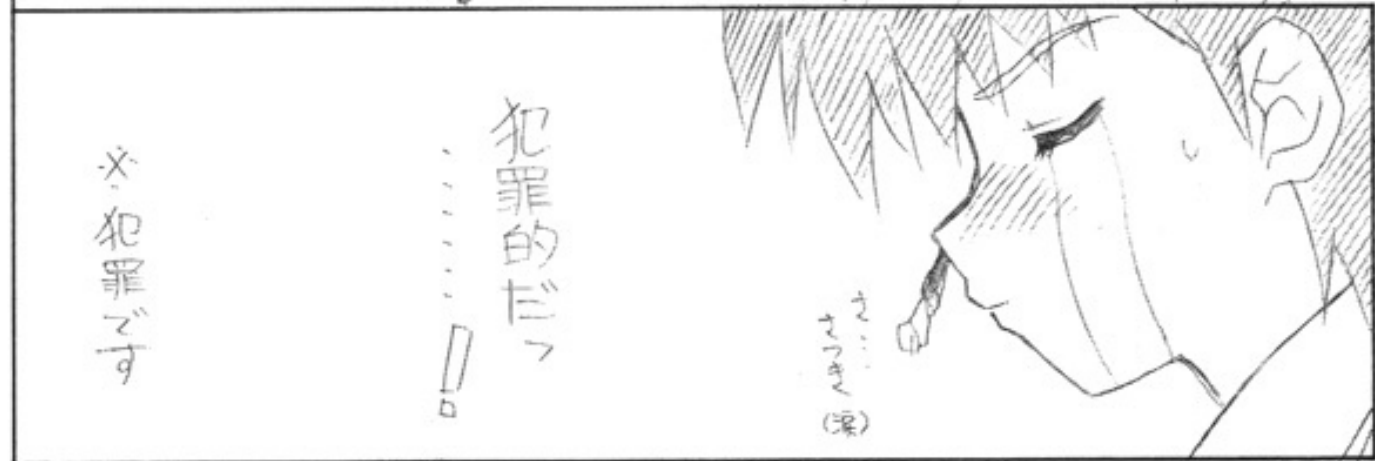 さ…
さつきく
(涙)
犯罪的だっ
……！
※犯罪です